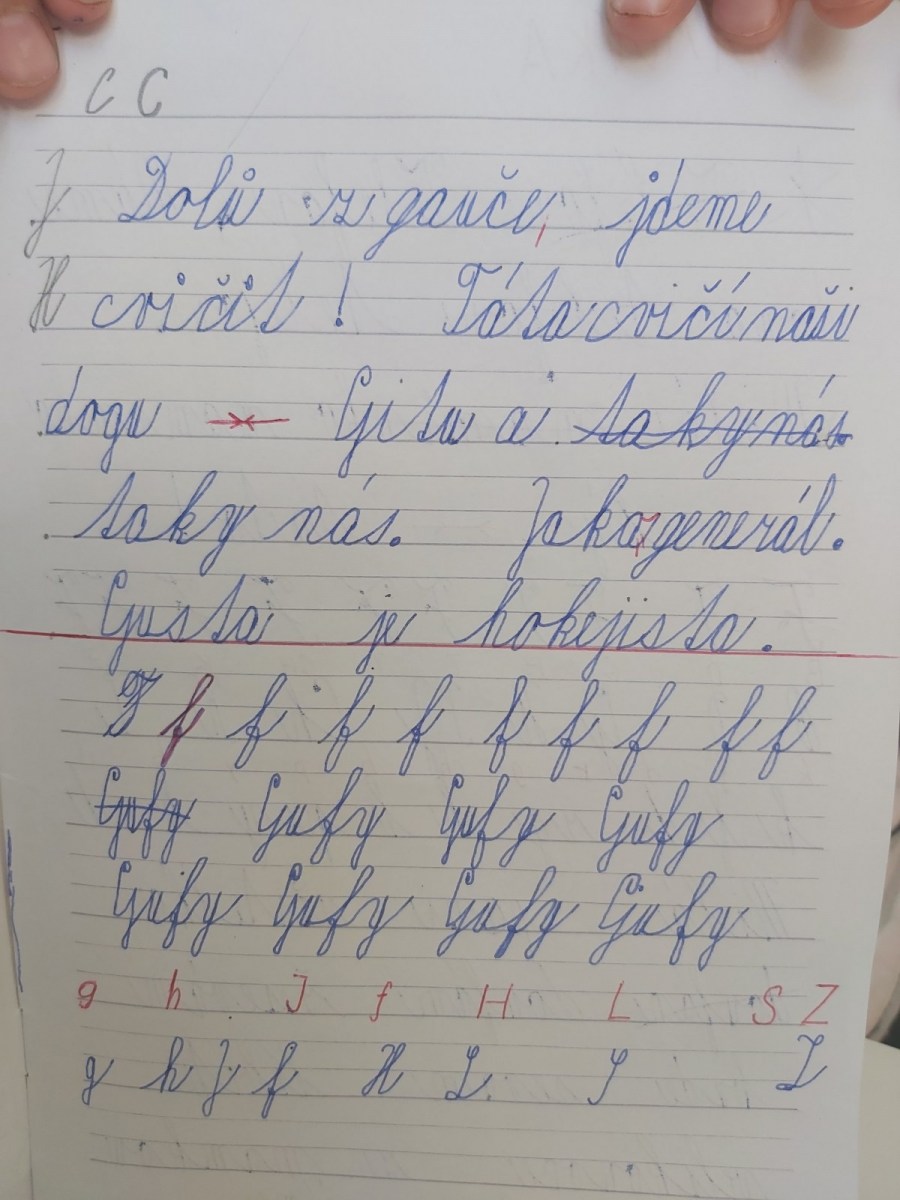 C C
J Dolů z gauče, jdeme
H cvičit! Táta cvičí naši
dogu Gitu a taky nás
taky nás. Jako generál.
Gusta je hokejista.
F f f f f f f f f f
Gufy Gufy Gufy Gufy
Gufy Gufy Gufy Gufy
g h J f H L S Z
g h J f H L S Z